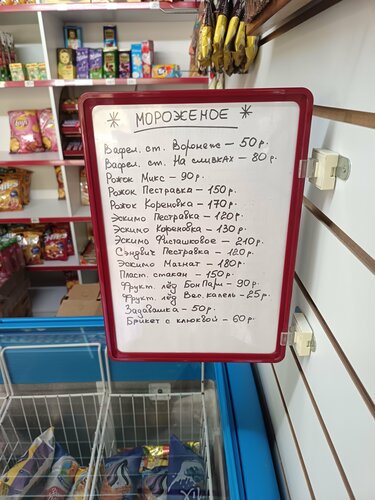 * МОРОЖЕНОЕ *
Вафел. ст. Воронеж – 50 р.
Вафел. ст. На сливках – 80 р.
Рожок Микс – 90 р.
Рожок Пестравка – 150 р.
Рожок Кореновка – 170 р.
Эскимо Пестравка – 120 р.
Эскимо Кореновка – 130 р.
Эскимо Фисташковое – 210 р.
Сэндвич Пестравка – 120 р.
Эскимо Магнат – 180 р.
Пласт. стакан – 150 р.
Фрукт. лёд Бон Пари – 90 р.
Фрукт. лёд Вес. капель – 25 р.
Задавашка – 50 р.
Брикет с клюквой – 60 р.